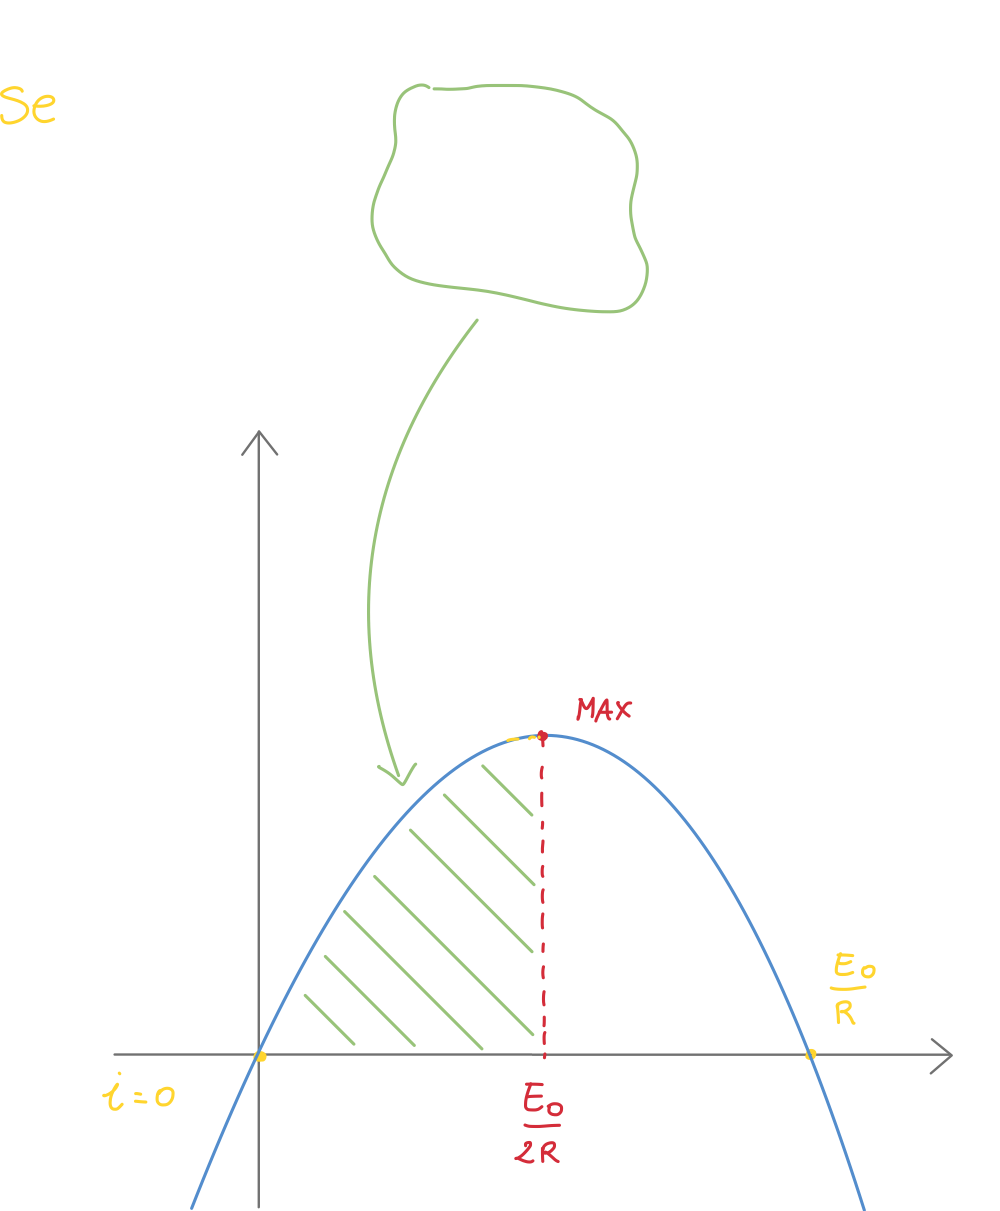 Se
MAX
E₀/R
i=0
E₀/2R